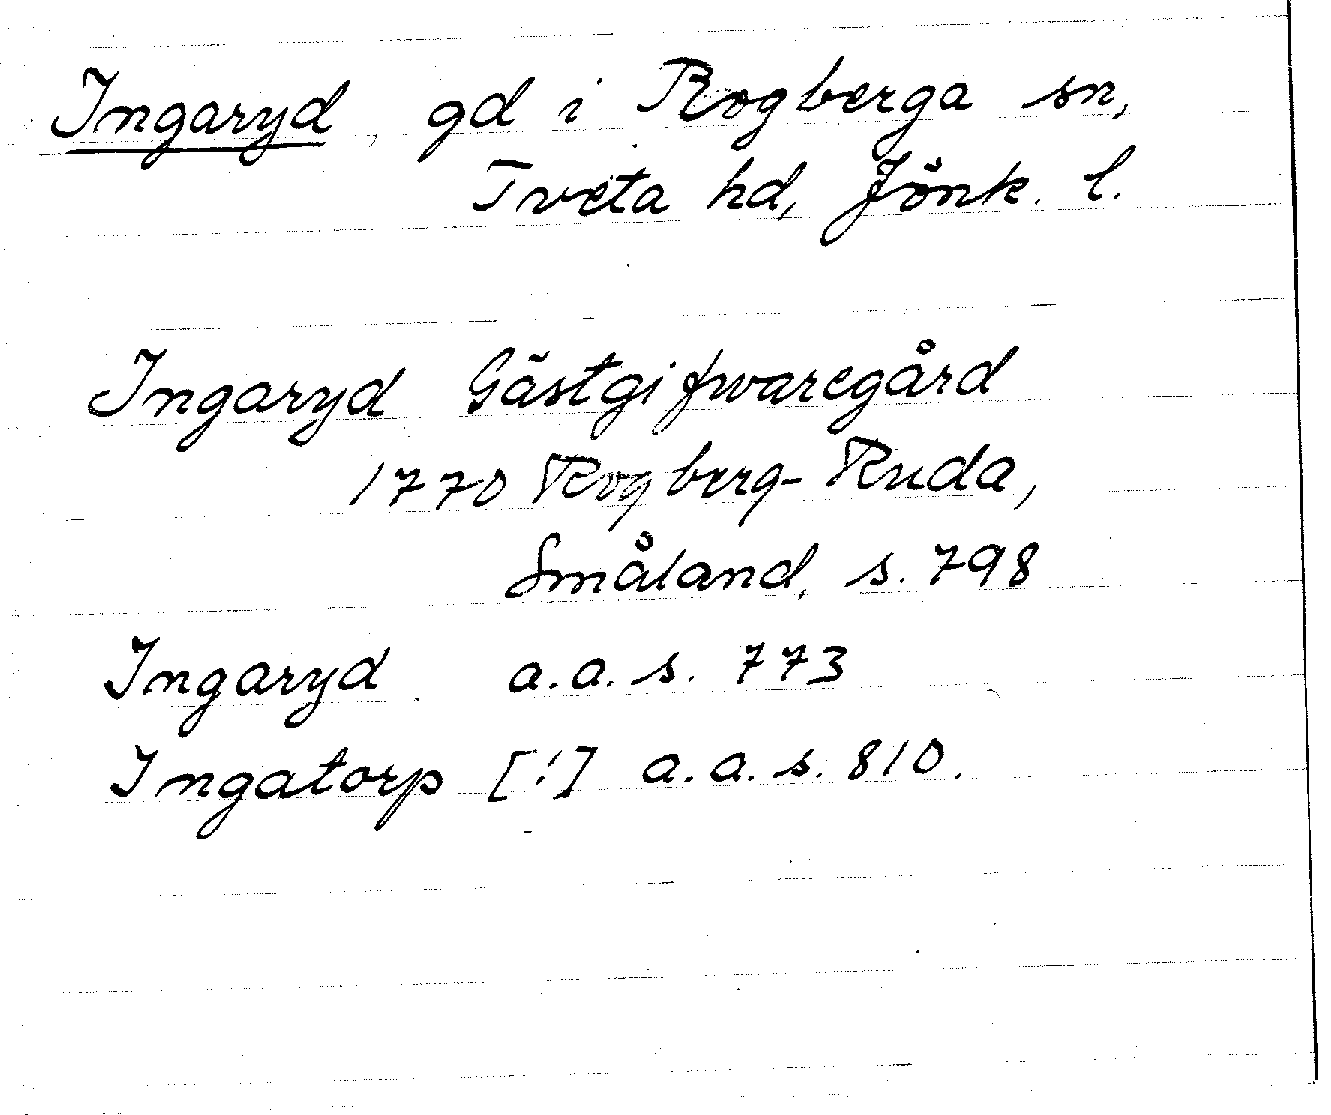 Ingaryd, gd i Rogberga sn,
Tveta hd, Jönk. l.
Ingaryd Gästgifwaregård
1770 Rogberg-Ruda,
Småland, s. 798
Ingaryd a.a. s. 773
Ingatorp [!] a.a. s. 810.